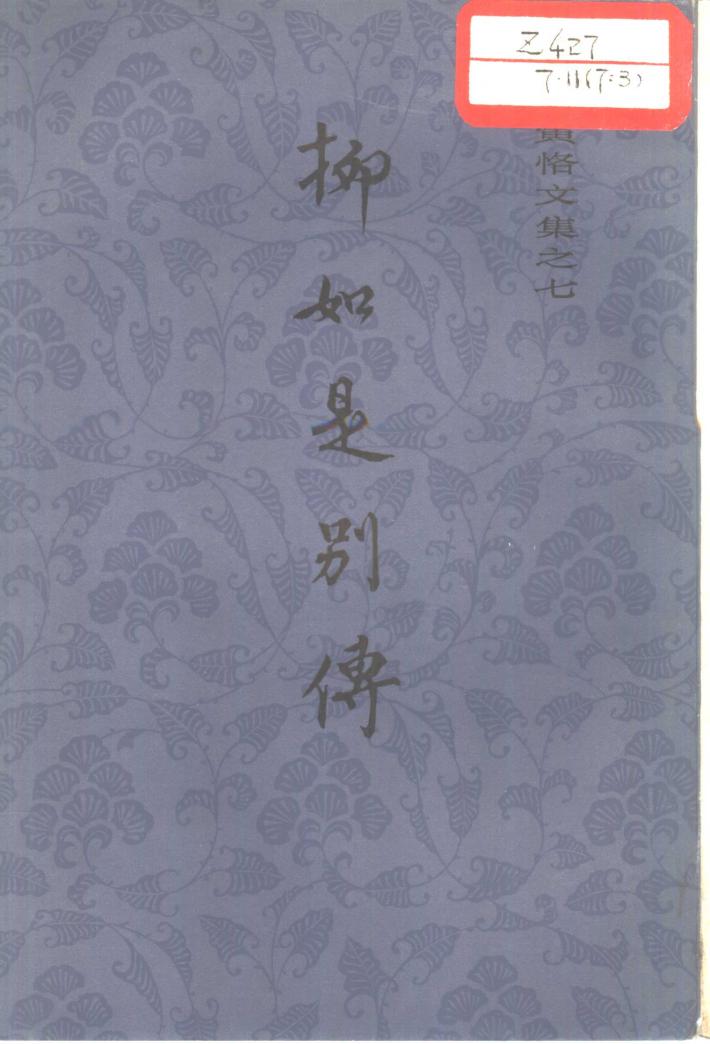 Z427
7·11(7:3)
寅恪文集之七
柳如是别傳